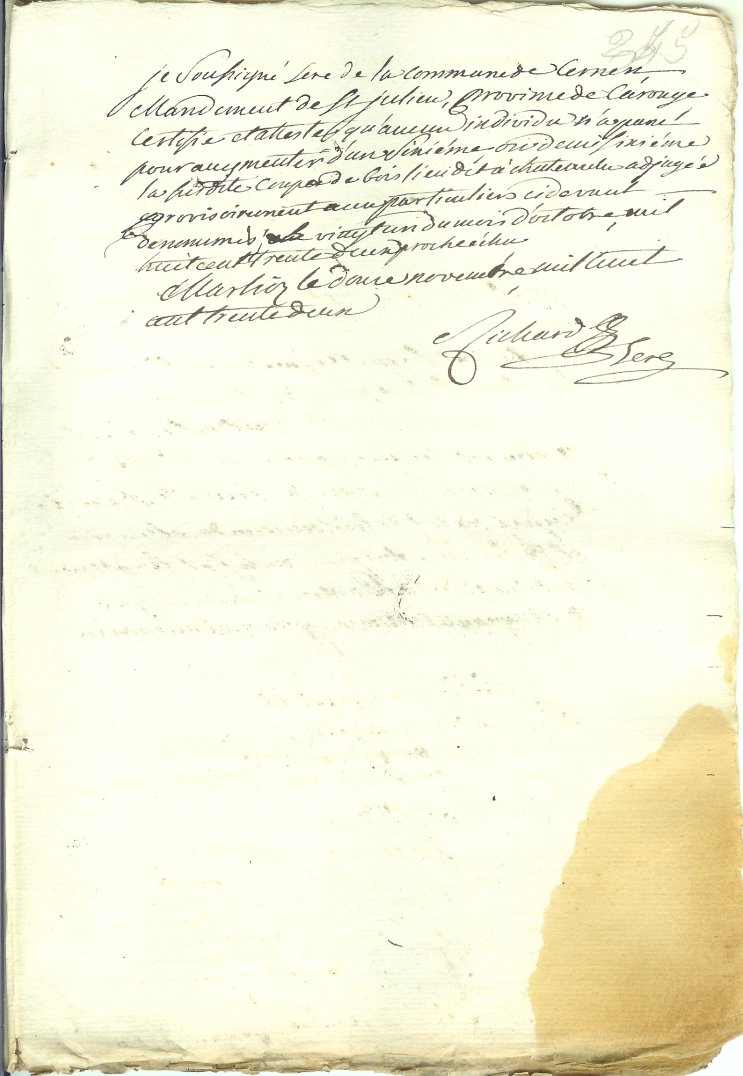 245
je Soussigné Sere de la commune de Cernex
Mandement de St julien, Province de Carouge
certifie et atteste qu'aucun individu n'a parué
pour augmenter d'un sixième ou demi sixième
la susdite coupe de bois lieu dit à chateau adjugée
provisoirement aux particuliers ci devant
denommés, le vingt un du mois d'octobre mil
huit cent trente deux proche échu
Marlioz le douze novembre mil huit
cent trente deux
Richard Sere